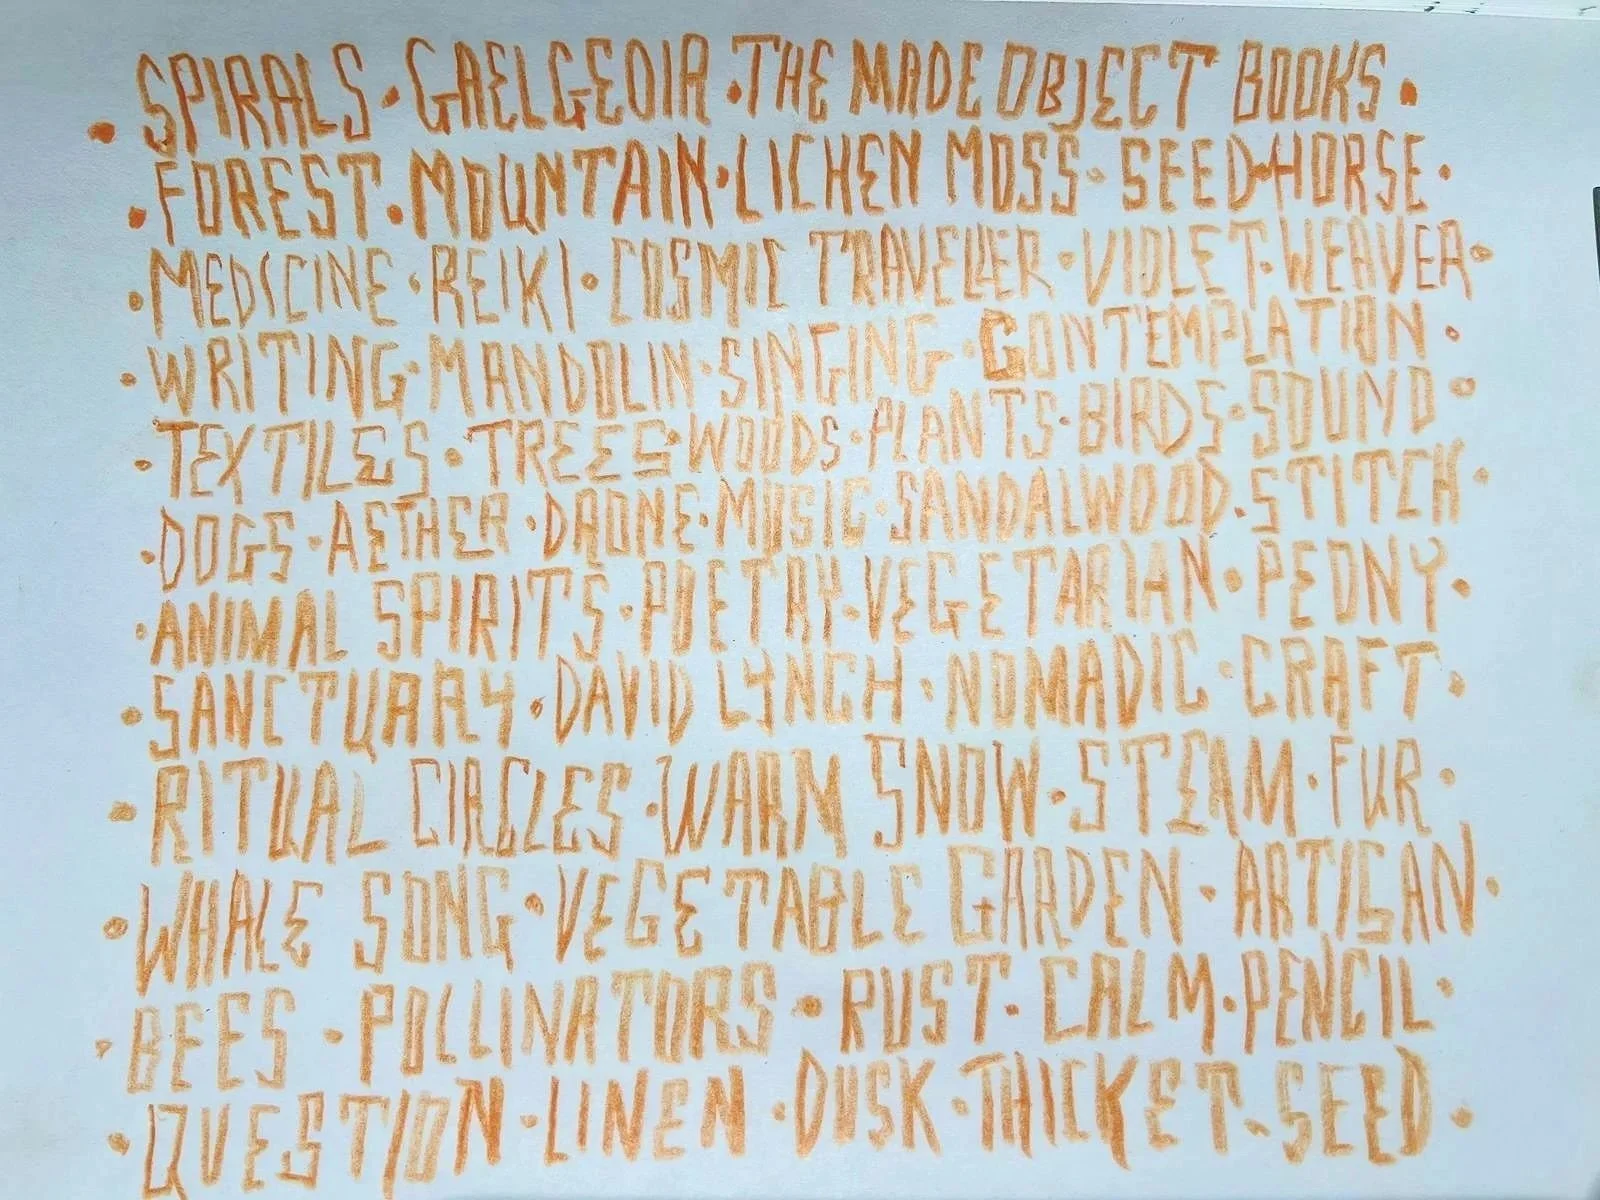 • SPIRALS • GAELGEOIR • THE MADE OBJECT BOOKS •
• FOREST • MOUNTAIN • LICHEN MOSS • SEED • HORSE •
• MEDICINE • REIKI • COSMIC TRAVELLER • VIOLET • WEAVER •
• WRITING • MANDOLIN • SINGING • CONTEMPLATION •
• TEXTILES • TREES • WOODS • PLANTS • BIRDS • SOUND •
• DOGS • AETHER • DRONE • MUSIC • SANDALWOOD • STITCH •
• ANIMAL SPIRITS • POETRY • VEGETARIAN • PEONY •
• SANCTUARY • DAVID LYNCH • NOMADIC • CRAFT •
• RITUAL CIRCLES • WARM SNOW • STEAM • FUR •
• WHALE SONG • VEGETABLE GARDEN • ARTISAN •
• BEES • POLLINATORS • RUST • CALM • PENCIL •
• QUESTION • LINEN • DUSK • THICKET • SEED •